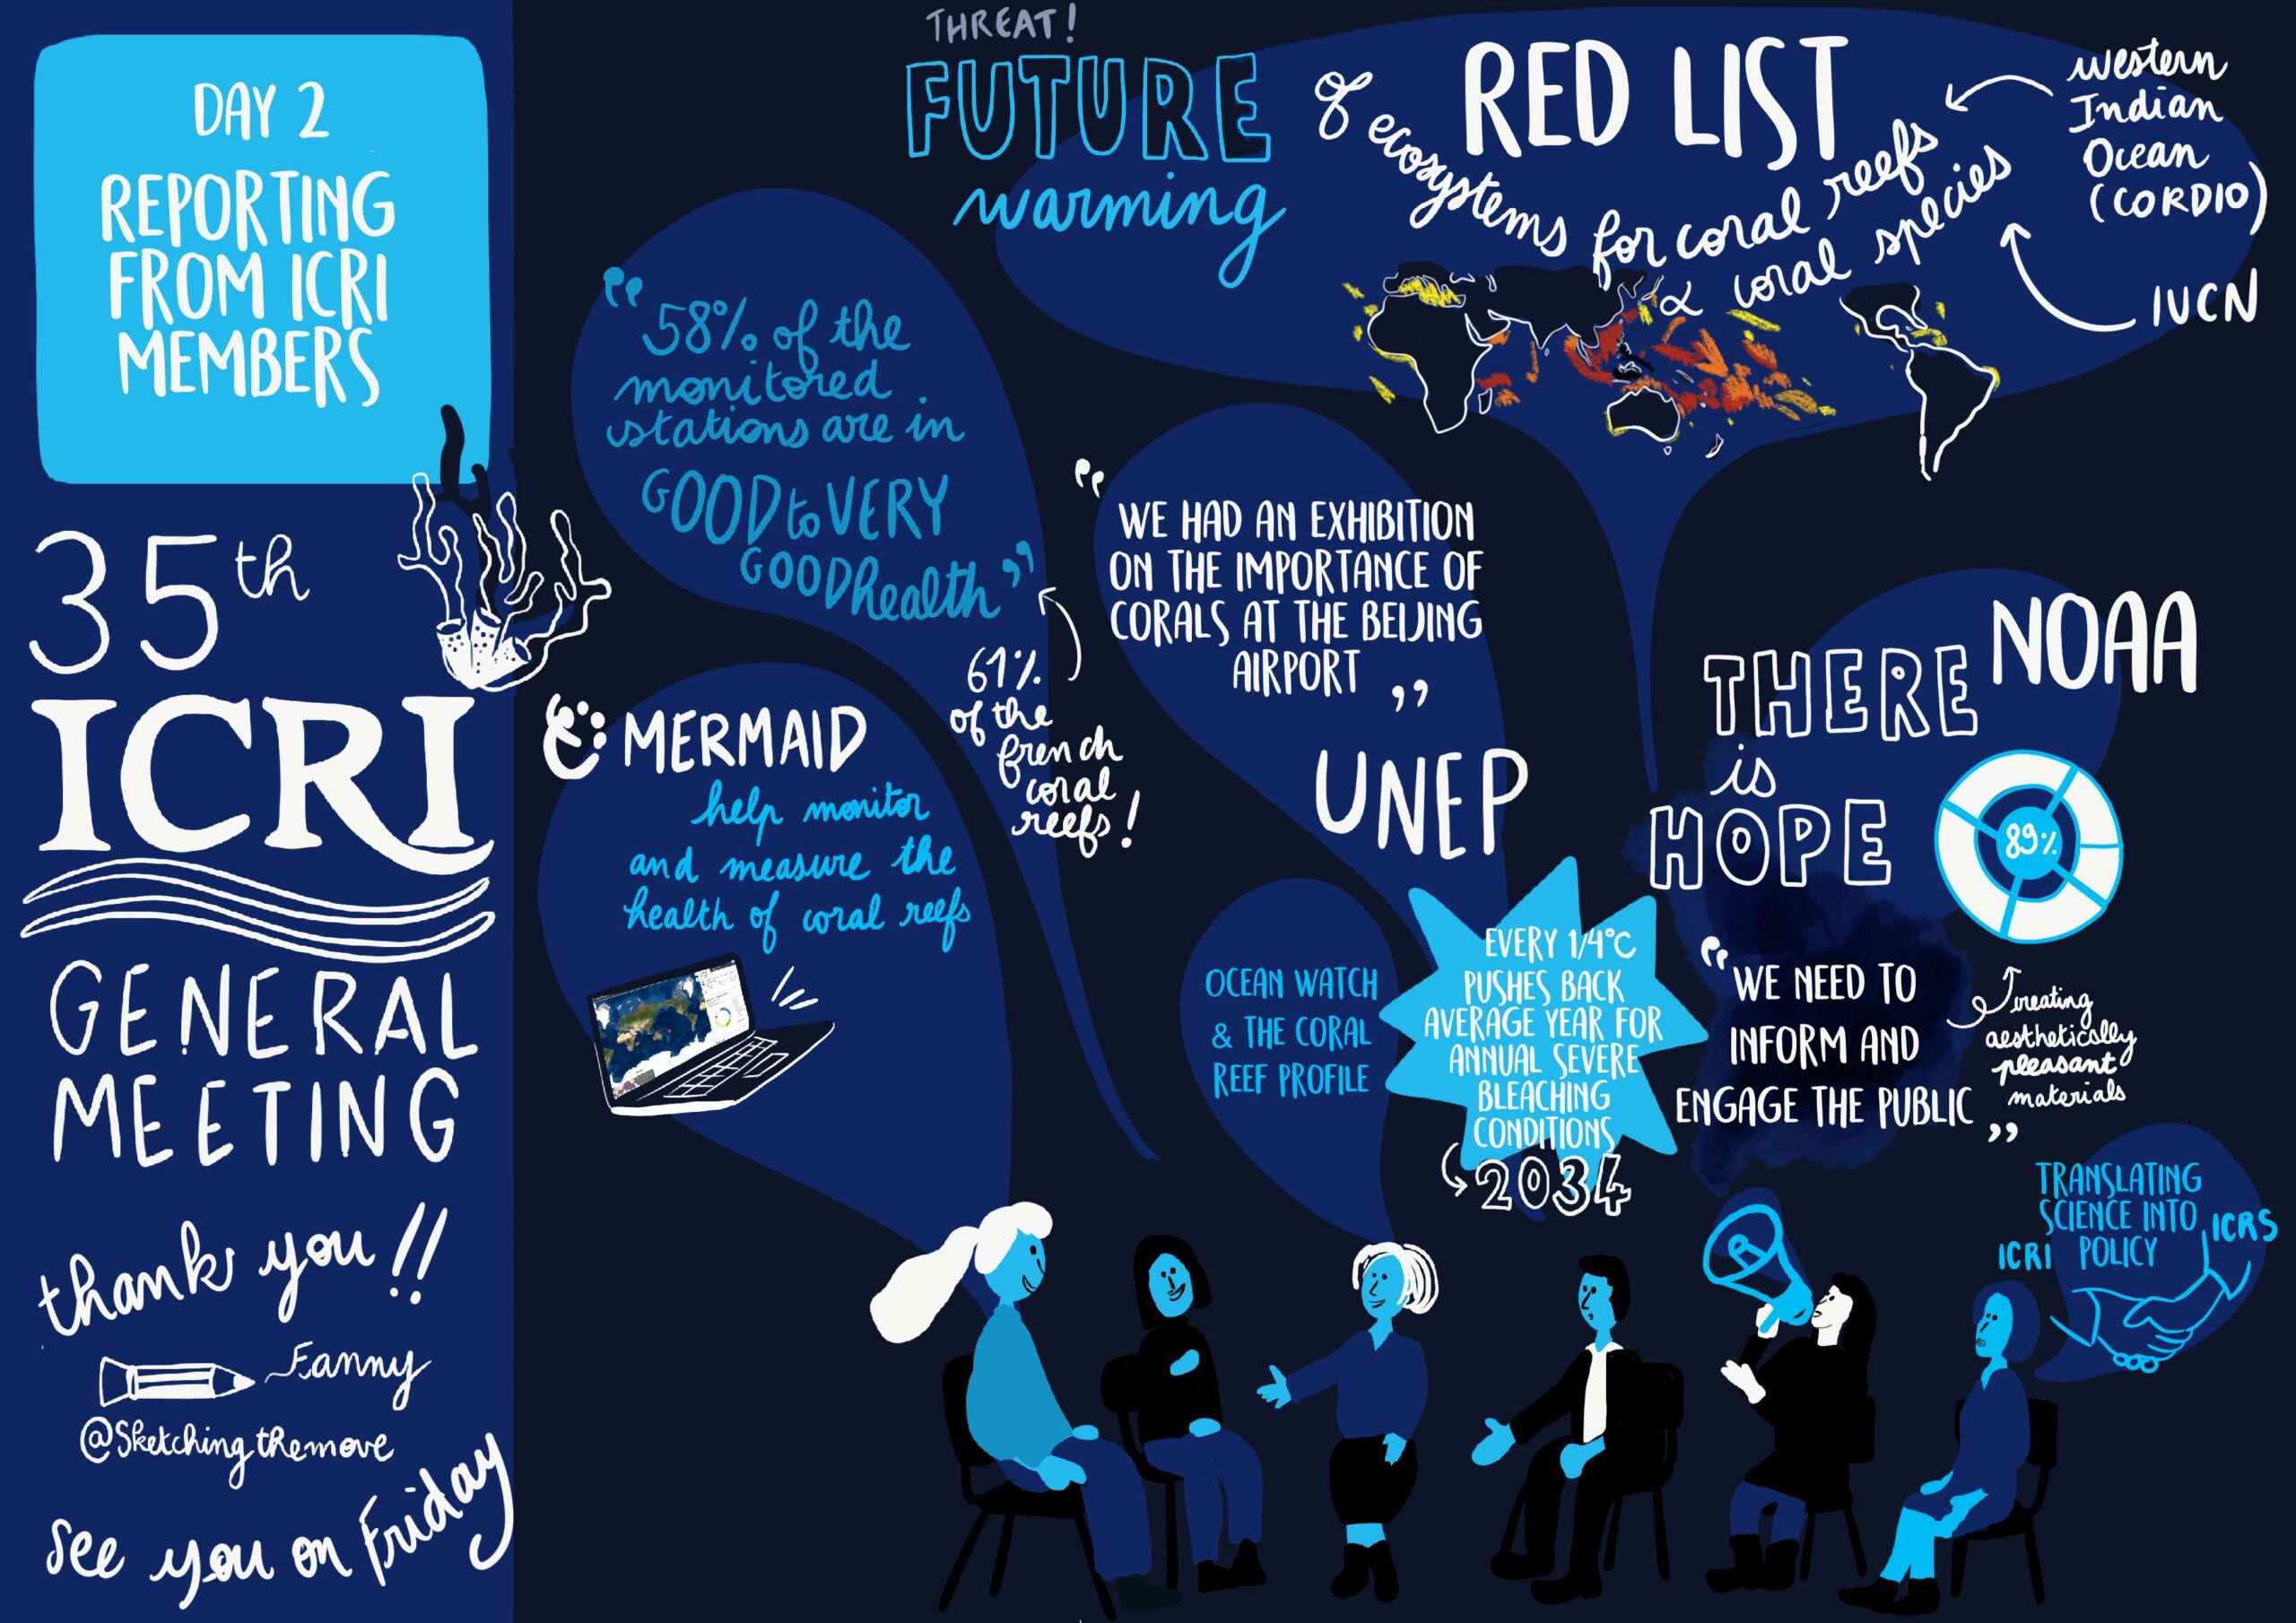 DAY 2
REPORTING
FROM ICRI
MEMBERS
35th
ICRI
GENERAL
MEETING
thank you!!
Fanny
@Sketchingthemove
See you on Friday
THREAT!
FUTURE
warming
RED LIST
of ecosystems for coral reefs
& coral species
Western
Indian
Ocean
(CORDIO)
IUCN
“58% of the
monitored
stations are in
GOOD to VERY
GOOD health”
61%
of the
french
coral
reefs!
MERMAID
help monitor
and measure the
health of coral reefs
“WE HAD AN EXHIBITION
ON THE IMPORTANCE OF
CORALS AT THE BEIJING
AIRPORT”
UNEP
OCEAN WATCH
& THE CORAL
REEF PROFILE
EVERY 1/4°C
PUSHES BACK
AVERAGE YEAR FOR
ANNUAL SEVERE
BLEACHING
CONDITIONS
2034
NOAA
THERE
is
HOPE
89%
“WE NEED TO
INFORM AND
ENGAGE THE PUBLIC”
creating
aesthetically
pleasant
materials
TRANSLATING
SCIENCE INTO
POLICY
ICRI
ICRS